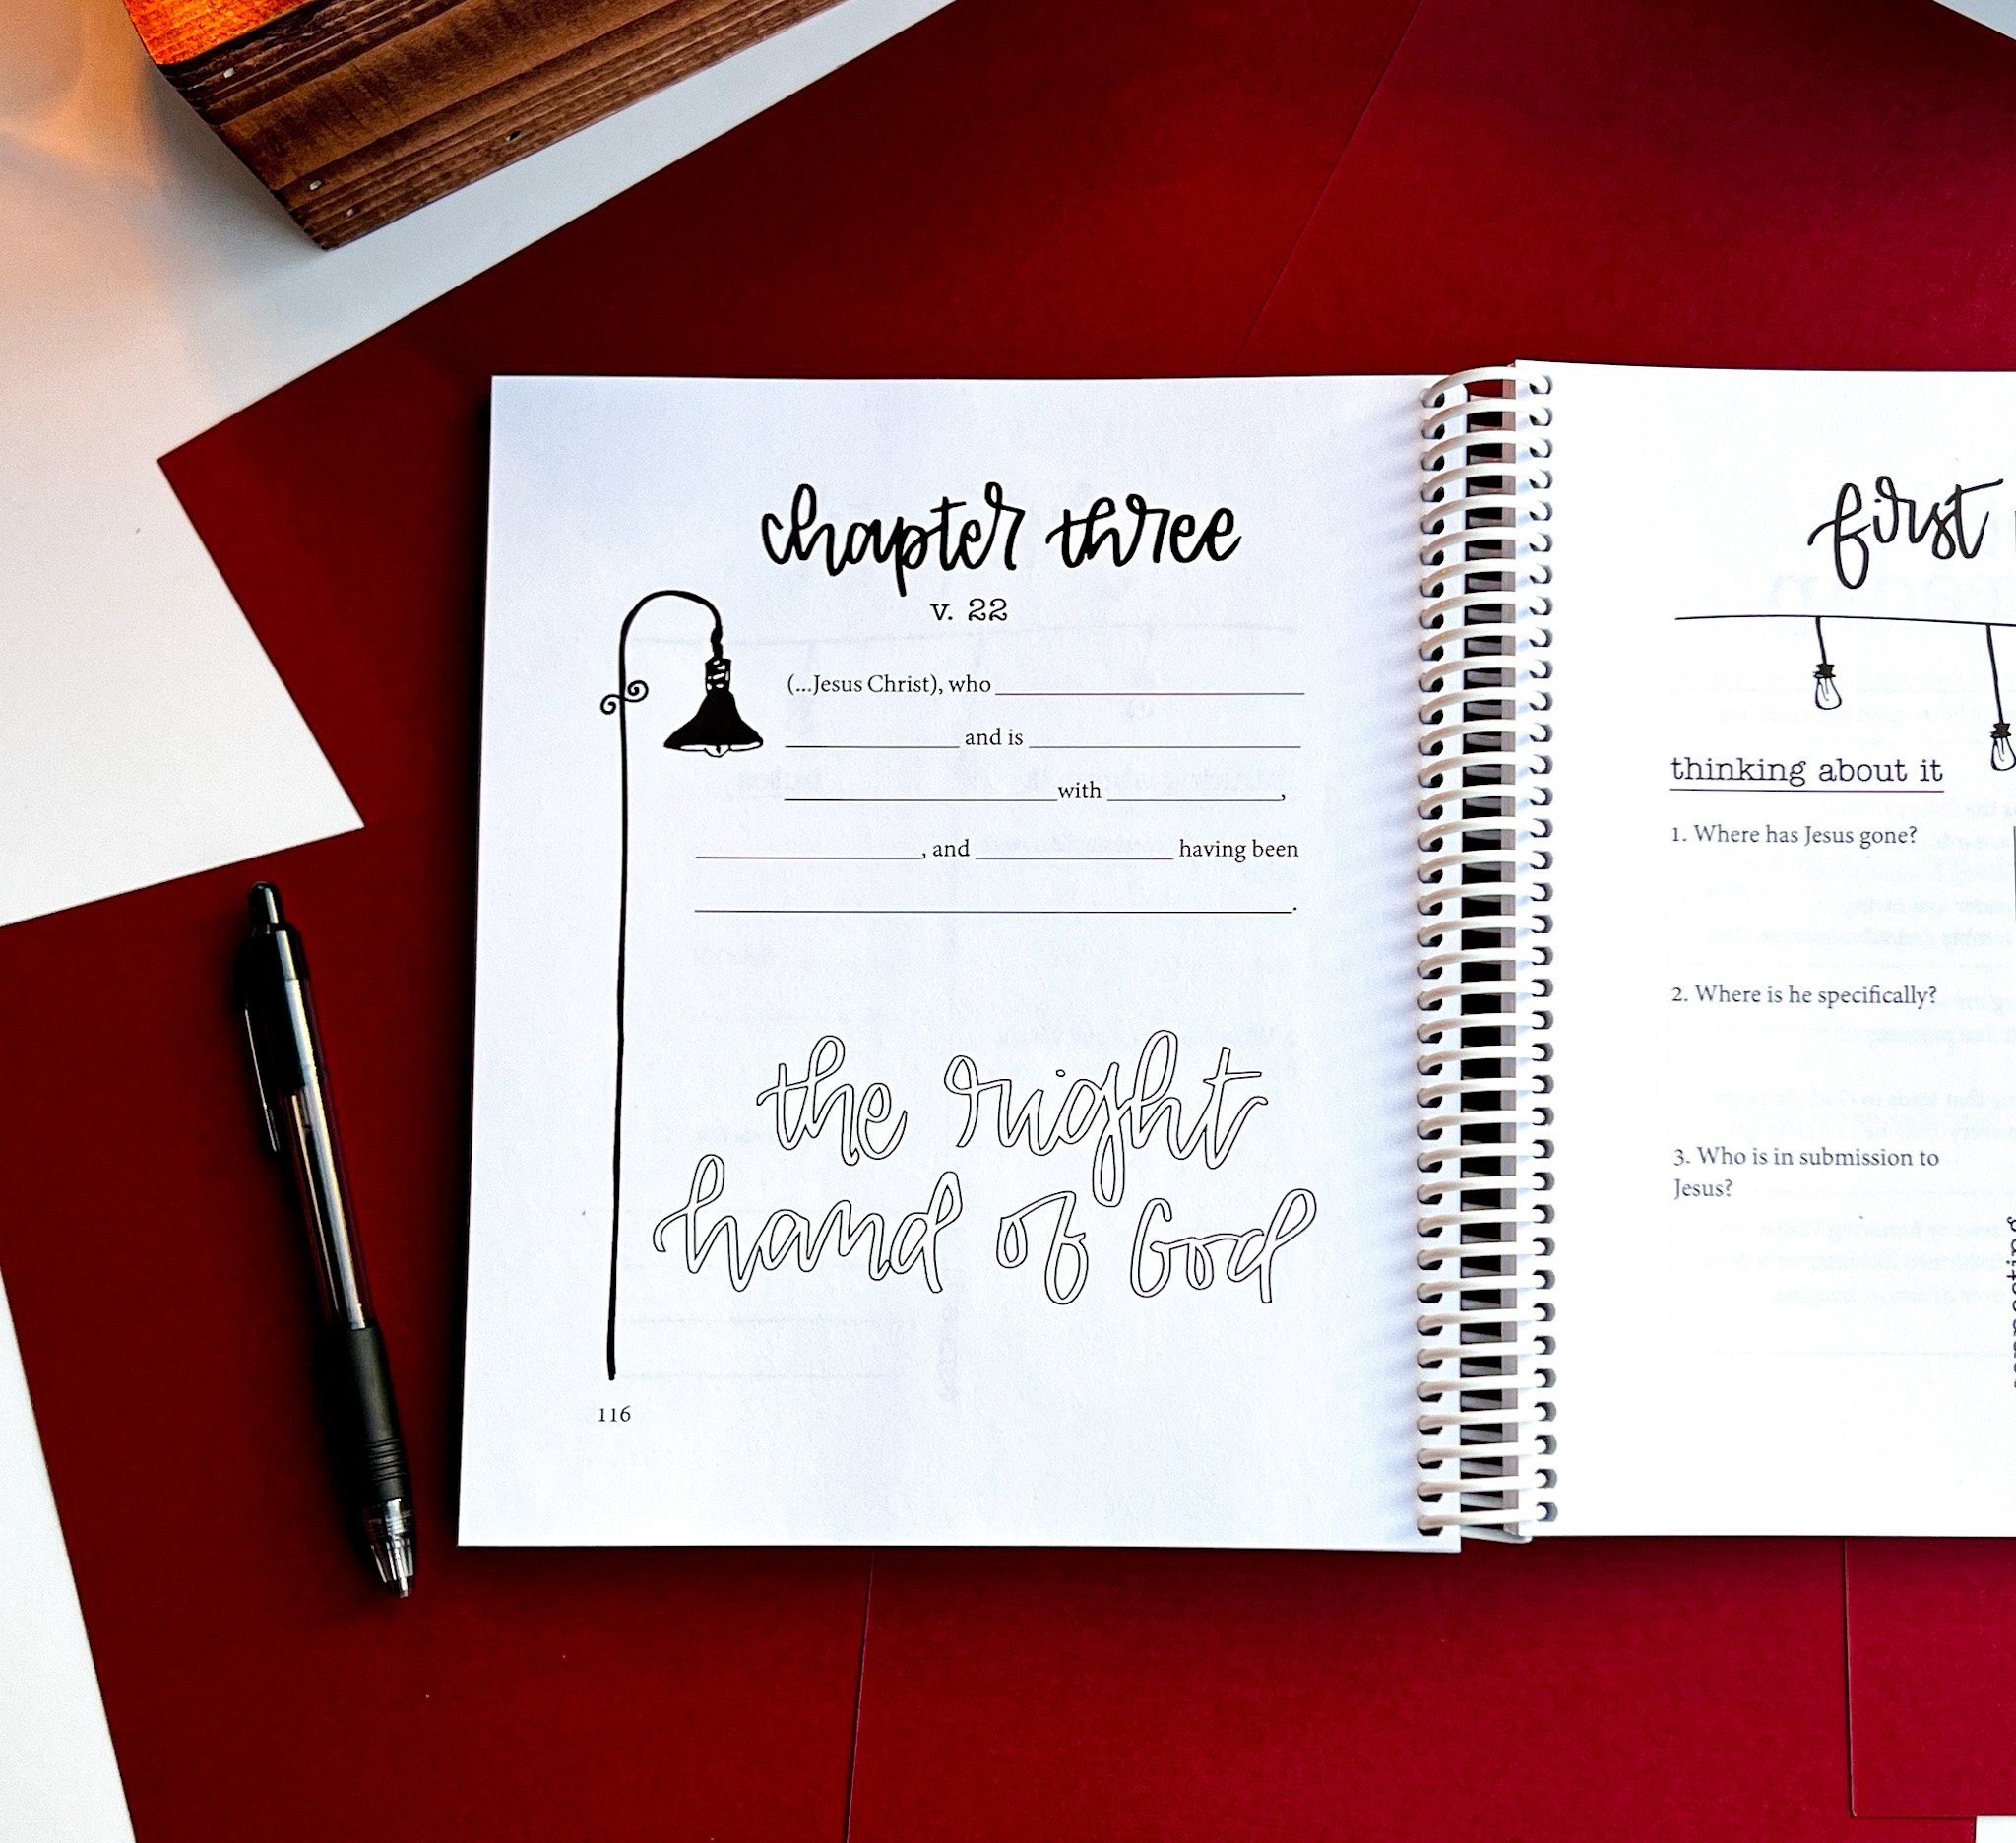 chapter three
v. 22
(...Jesus Christ), who ____________
____________ and is ____________
____________ with ____________,
____________, and ____________ having been
____________.
the right
hand of God
116
first
thinking about it
1. Where has Jesus gone?
2. Where is he specifically?
3. Who is in submission to
Jesus?